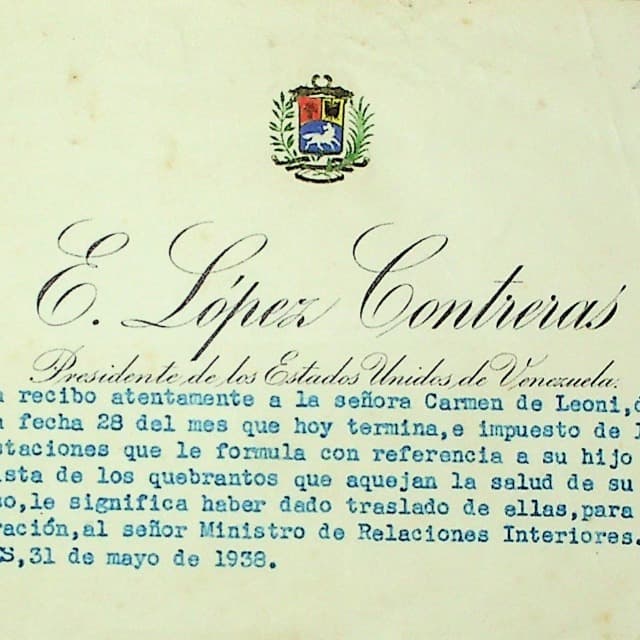 E. López Contreras
Presidente de los Estados Unidos de Venezuela.
recibo atentamente a la señora Carmen de Leoni,
fecha 28 del mes que hoy termina,e impuesto de
taciones que le formula con referencia a su hijo
ista de los quebrantos que aquejan la salud de su
so,le significa haber dado traslado de ellas,para
ración,al señor Ministro de Relaciones Interiores.
S,31 de mayo de 1938.